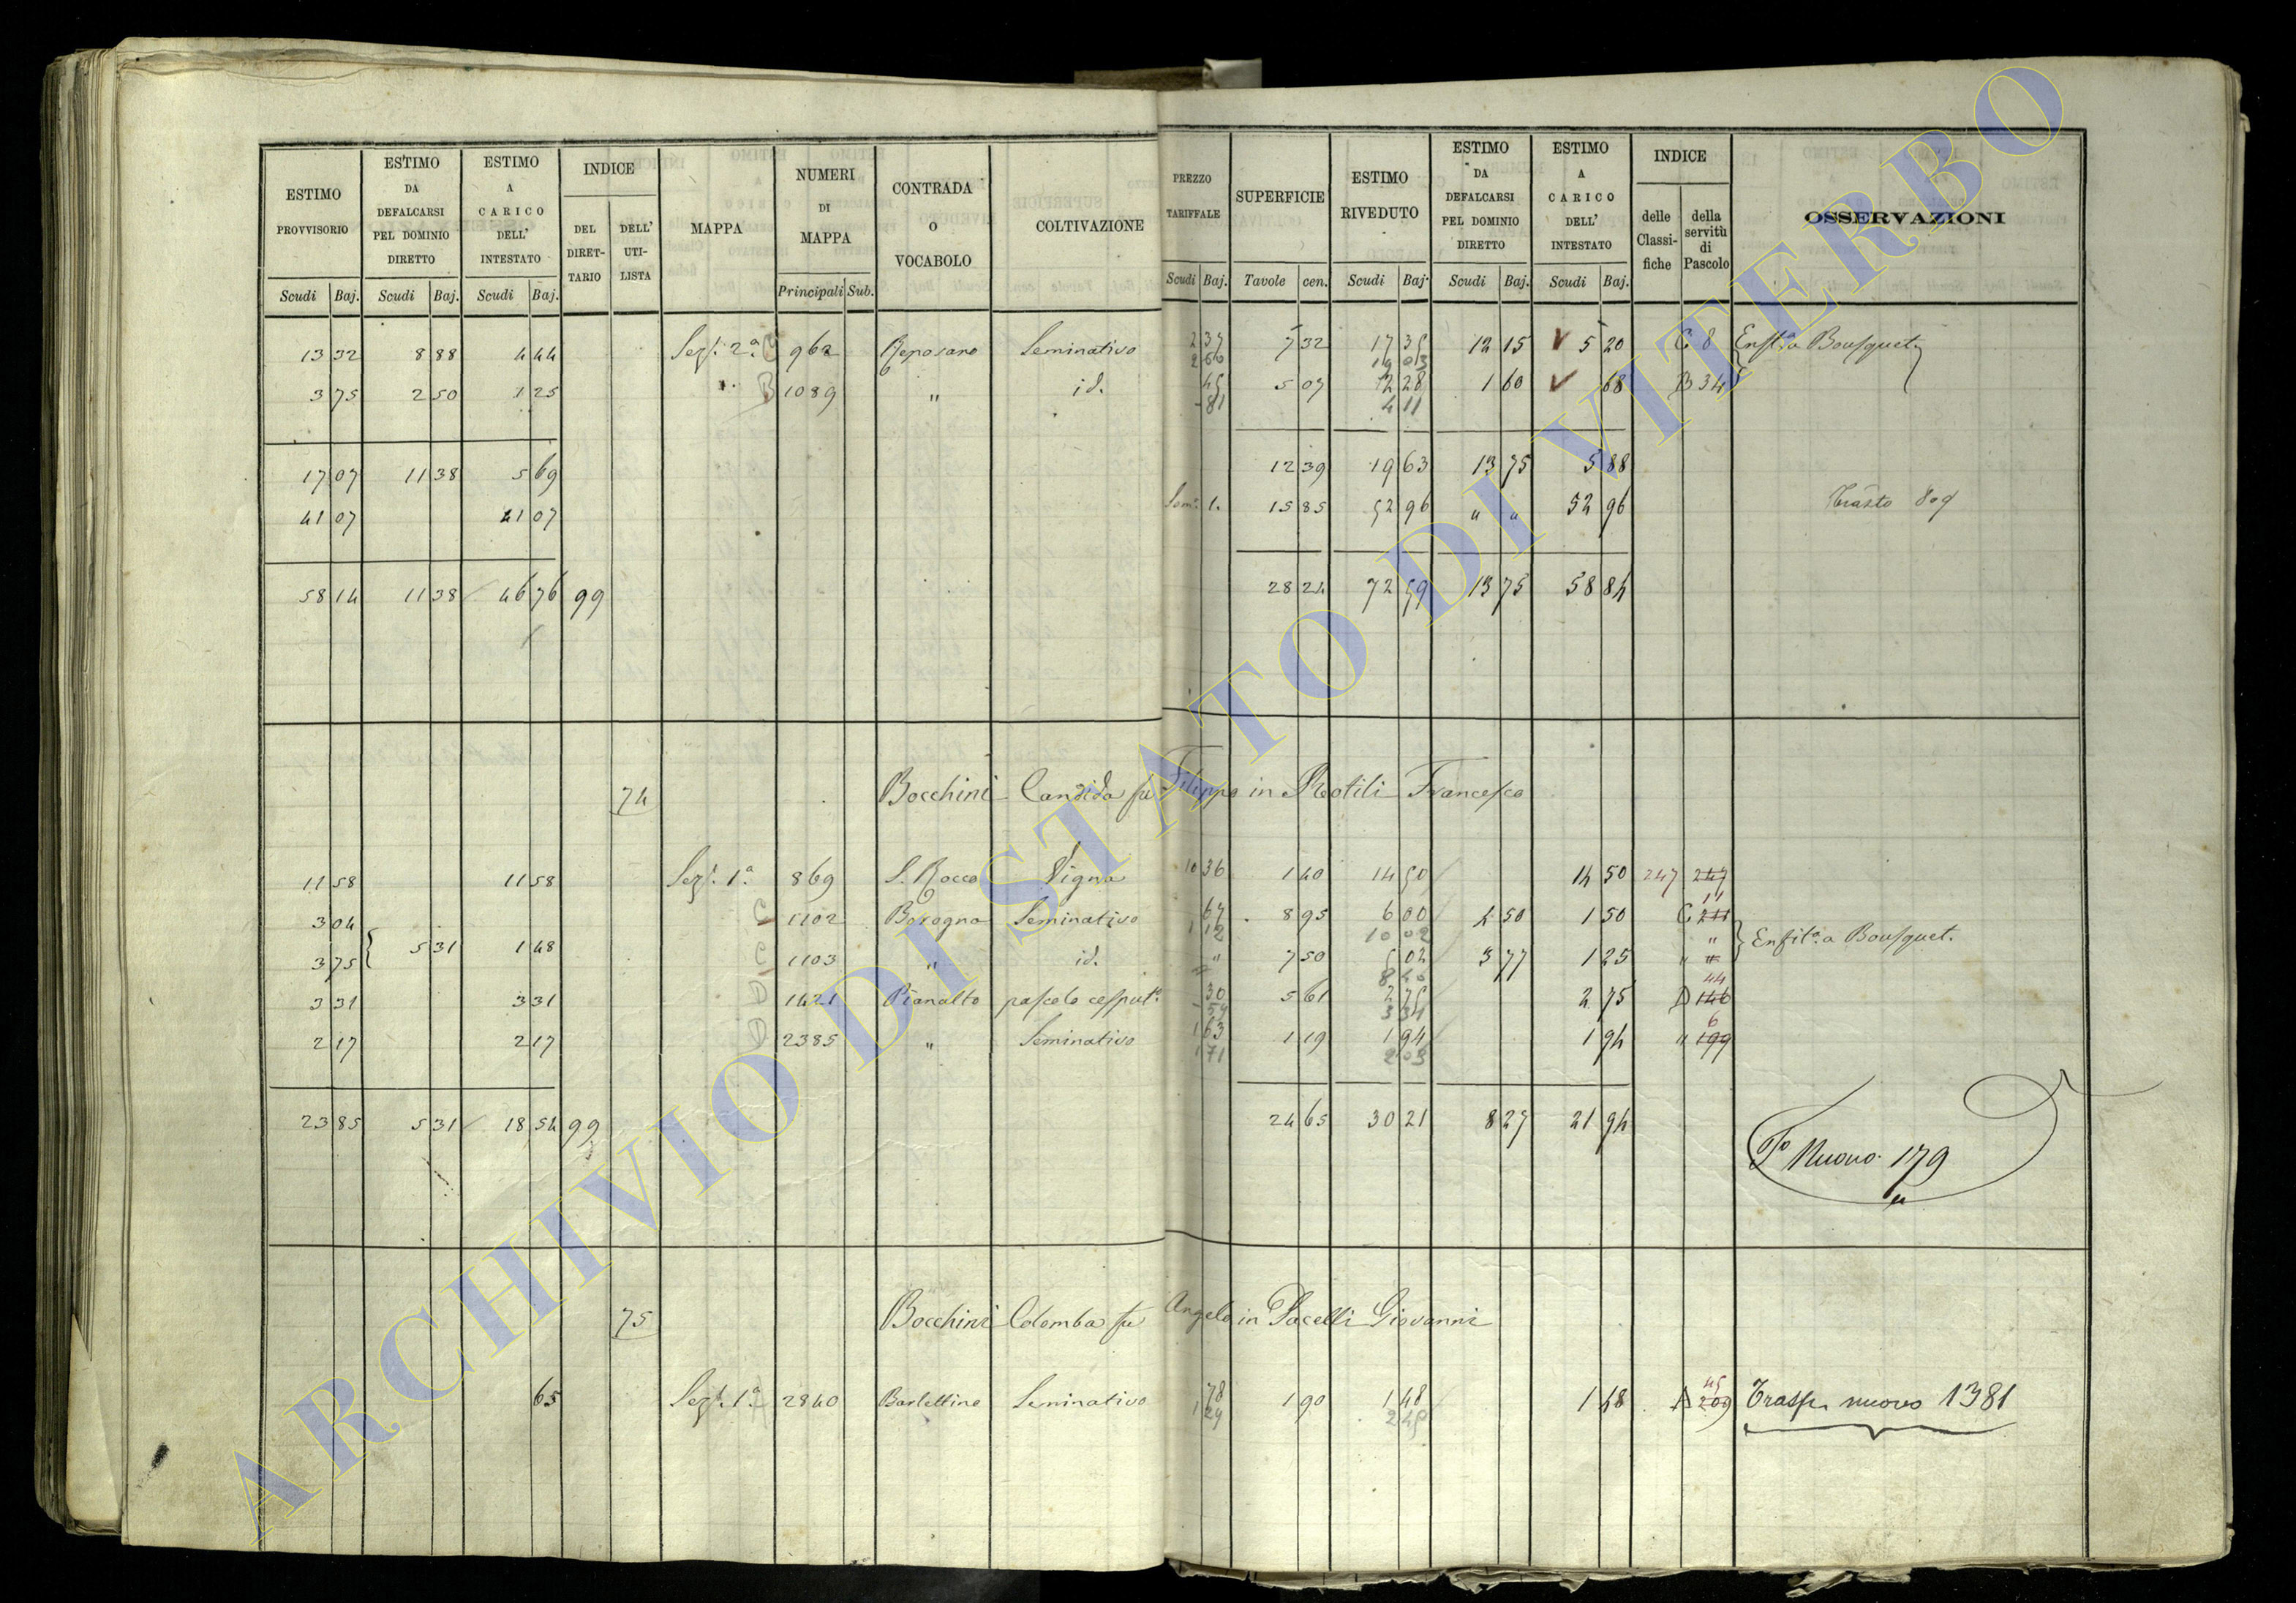 ESTIMO PROVVISORIO | ESTIMO DA DEFALCARSI PEL DOMINIO DIRETTO | ESTIMO A CARICO DELL' INTESTATO | INDICE DEL DIRETTARIO | DELL' UTILISTA | MAPPA | NUMERI DI MAPPA | CONTRADA O VOCABOLO | COLTIVAZIONE | PREZZO TARIFFALE | SUPERFICIE | ESTIMO RIVEDUTO | ESTIMO DA DEFALCARSI PEL DOMINIO DIRETTO | ESTIMO A CARICO DELL' INTESTATO | INDICE delle Classifiche | della servitù di Pascolo | OSSERVAZIONI
Scudi Baj. Scudi Baj. Scudi Baj. Principali Sub. Scudi Baj. Tavole cen. Scudi Baj. Scudi Baj. Scudi Baj.
13 32 8 88 4 44 Sez. 2ª 962 Seminativo 2 37 7 32 17 35 12 15 V 5 20 C 8 Enfit.ª Bousquet
2 60 19 03
3 75 2 50 1 25 B 1089 " id. 45 5 07 2 28 1 60 V 68 B 34
81 4 11
17 07 11 38 5 69 12 39 19 63 13 75 5 88
41 07 41 07 Som. 1. 15 85 52 96 " " 52 96 Trasto 809
58 14 11 38 46 76 99 28 24 72 59 13 75 58 84
74 Bocchini Candida fu Filippo in Rotili Francesco
11 58 11 58 Sez. 1ª 869 S. Rocco Vigna 10 36 1 40 14 50 14 50 247 247
3 04 1102 Borogna Seminativo 67 8 95 6 00 4 50 1 50 C 11
1 12 10 02
5 31 1 48 Enfit.ª a Bousquet.
3 75 1103 " id. " 7 50 5 02 3 77 1 25 " "
3 31 3 31 D 1421 Pianalto pascolo cesput. 30 5 61 2 75 2 75 D 146 44
59 3 31
2 17 2 17 D 2385 " Seminativo 1 63 1 19 1 94 1 94 " 199 6
1 71 2 03
23 85 5 31 18 54 99 24 65 30 21 8 27 21 94
Nuovo 179
75 Bocchini Colomba fu Angelo in Pacelli Giovanni
65 Sez. 1ª 2840 Bartellino Seminativo 78 1 90 1 48 1 48 A 209 45 Trasp. nuovo 1381
1 29 2 45
ARCHIVIO DI STATO DI VITERBO